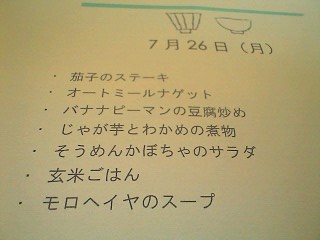 7月26日（月）
・茄子のステーキ
・オートミールナゲット
・バナナピーマンの豆腐炒め
・じゃが芋とわかめの煮物
・そうめんかぼちゃのサラダ
・玄米ごはん
・モロヘイヤのスープ